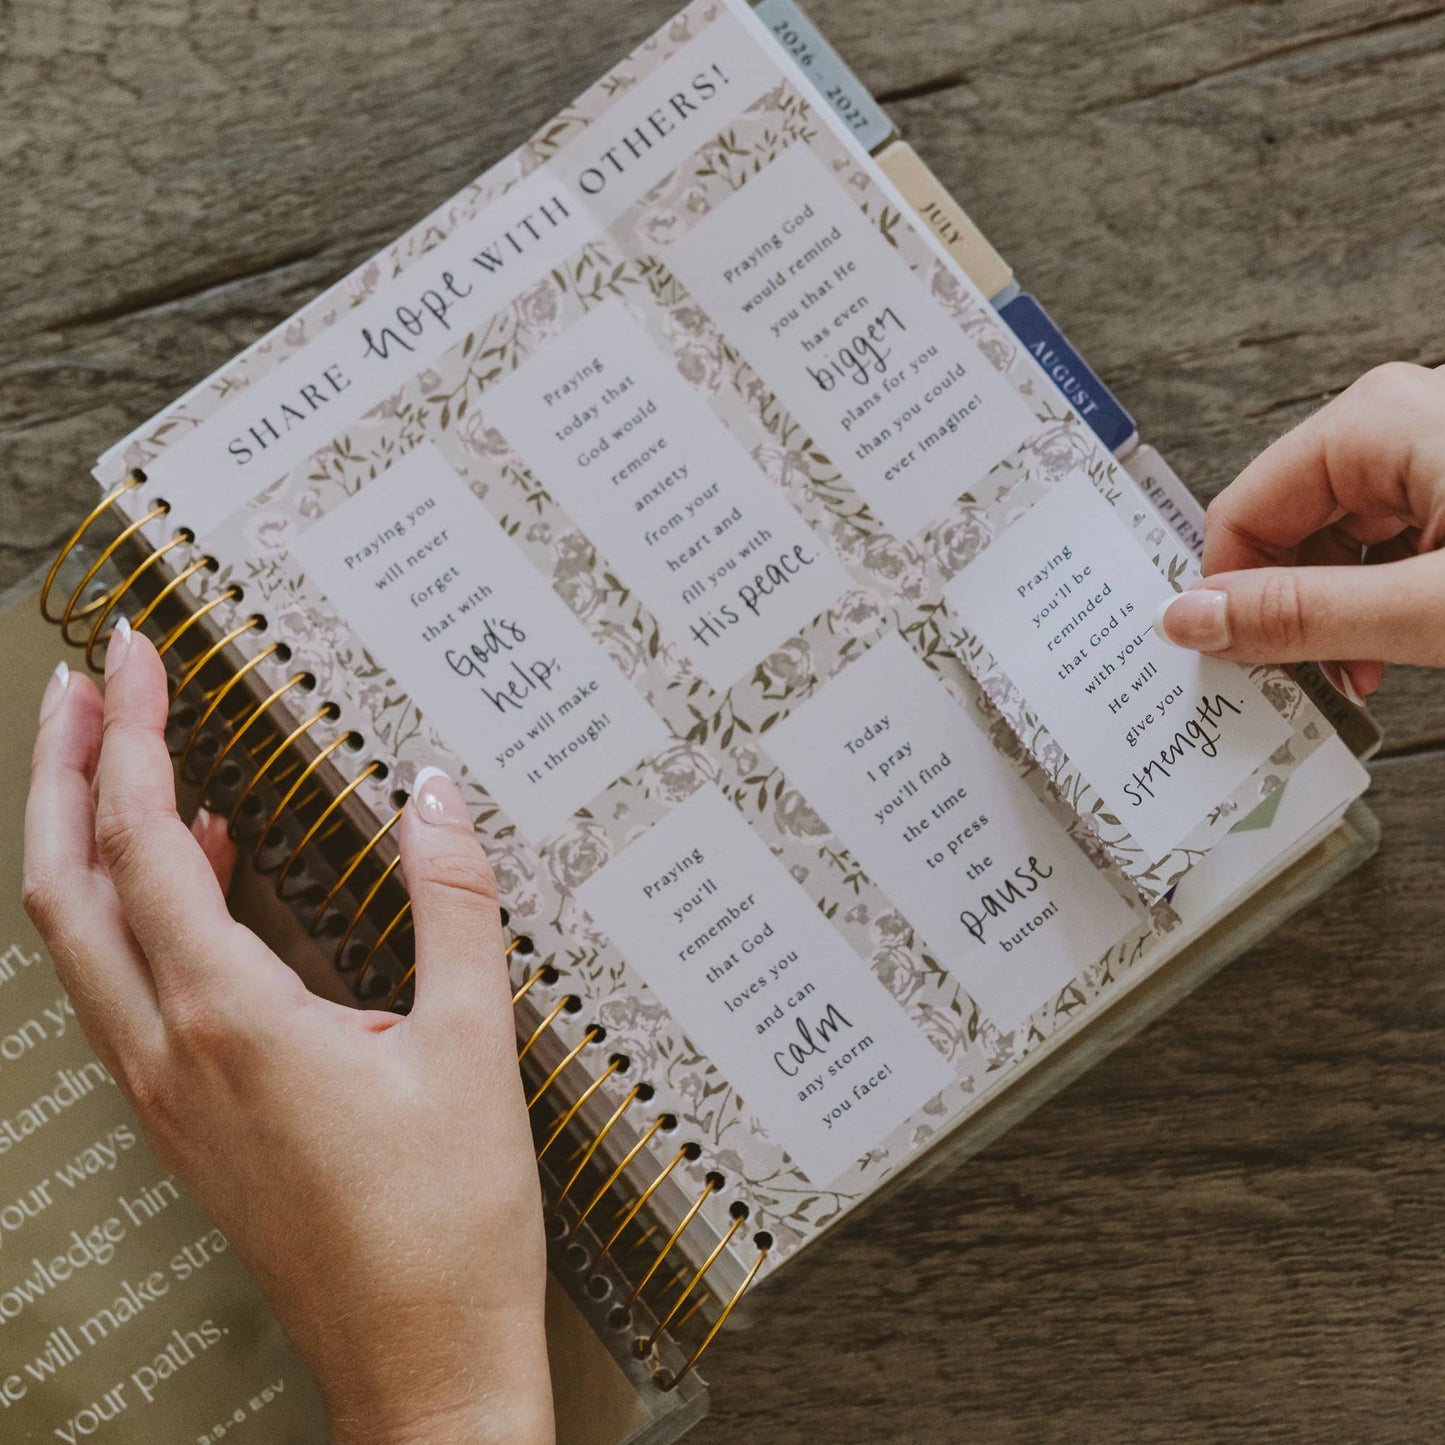 SHARE hope WITH OTHERS!
Praying you
will never
forget
that with
God's
help,
you will make
it through!
Praying
today that
God would
remove
anxiety
from your
heart and
fill you with
His peace.
Praying God
would remind
you that He
has even
bigger
plans for you
than you could
ever imagine!
Praying
you'll
remember
that God
loves you
and can
calm
any storm
you face!
Today
I pray
you'll find
the time
to press
the
pause
button!
Praying
you'll be
reminded
that God is
with you—
He will
give you
strength.
2026 – 2027
JULY
AUGUST
SEPTEM
OBER
art,
on yo
standing
our ways
owledge him
e will make stra
your paths.
3:5-6 ESV